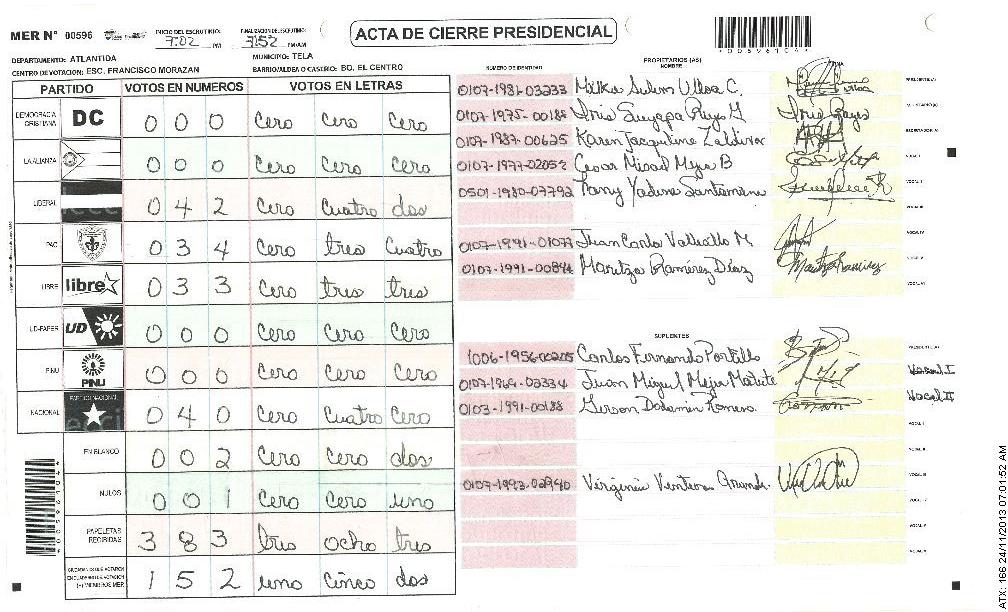 MER N° 00596 INICIO DEL ESCRUTINIO: 7:02 PM FINALIZACION DE ESCRUTINIO: 7:52 PM/AM
ACTA DE CIERRE PRESIDENCIAL
DEPARTAMENTO: ATLANTIDA MUNICIPIO: TELA
CENTRO DE VOTACION: ESC. FRANCISCO MORAZAN BARRIO/ALDEA O CASERIO: BO. EL CENTRO
PARTIDO VOTOS EN NUMEROS VOTOS EN LETRAS
DEMOCRACIA CRISTIANA DC 0 0 0 Cero Cero Cero
LA ALIANZA 0 0 0 Cero Cero Cero
LIBERAL 0 4 2 Cero Cuatro dos
PAC 0 3 4 Cero tres Cuatro
LIBRE libre 0 3 3 Cero tres tres
UD-FAPER UD 0 0 0 Cero Cero Cero
PINU PINU 0 0 0 Cero Cero Cero
NACIONAL PARTIDO NACIONAL 0 4 0 Cero Cuatro Cero
EN BLANCO 0 0 2 Cero Cero dos
NULOS 0 0 1 Cero Cero uno
PAPELETAS RECIBIDAS 3 8 3 tres ocho tres
CIUDADANOS QUE VOTARON 1 5 2 uno Cinco dos
NUMERO DE IDENTIDAD PROPIETARIOS (AS) NOMBRE FIRMA
0107-1981-03233 Milka Ulloa C. PRESIDENTE(A)
0107-1975-00188 Iris Suyapa Reyes G Iris Reyes
0107-1987-00625 Karen Jacqueline Zaldivar SECRETARIO(A)
0107-1977-02052 Cesar Mejia B VOCAL I
0501-1980-07792 Fanny Yadira VOCAL II
VOCAL III
0107-1991-01077 Juan Carlo M. VOCAL IV
0107-1991-00894 Maritza Ramírez Díaz Maritza Ramirez VOCAL V
VOCAL VI
SUPLENTES
1006-1956-00205 Carlos Fernando Portillo PRESIDENTE(A)
0107-1969-02334 Juan Miguel Mejia Matute Vocal I
0103-1991-00188 Gerson Romero Vocal II
VOCAL I
VOCAL II
0107-1993-02940 Virginia Ventura VOCAL III
VOCAL IV
VOCAL V
VOCAL VI
ATX: 166 24/11/2013 07:01:52 AM